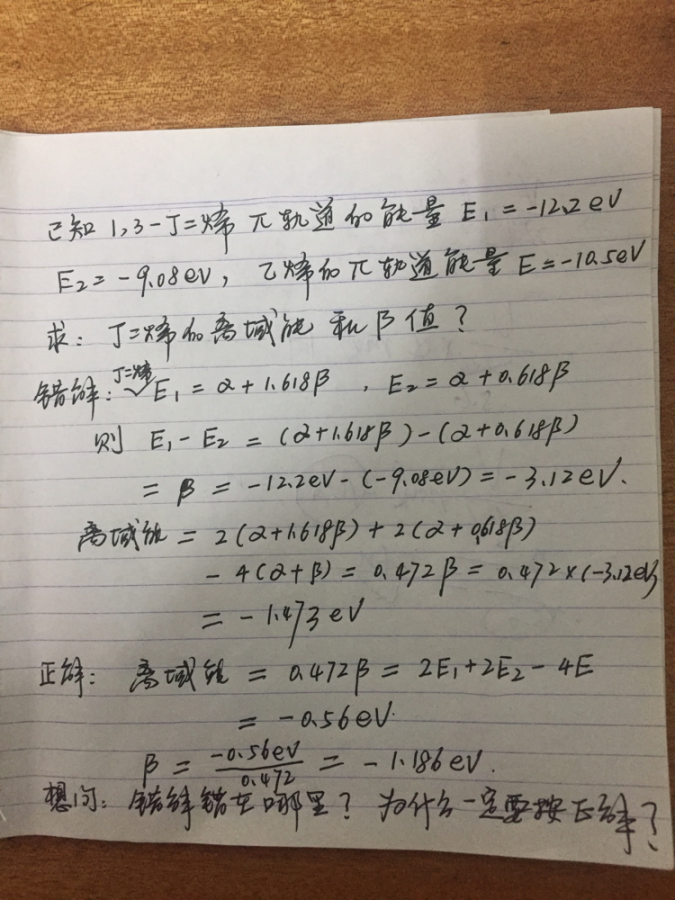 已知 1,3-丁二烯 π轨道的能量 E₁ = -12.2 eV
E₂ = -9.08 eV, 乙烯的π轨道能量 E = -10.5 eV
求: 丁二烯的离域能和β值?
错解: 丁二烯 E₁ = α + 1.618β , E₂ = α + 0.618β
则 E₁ - E₂ = (α + 1.618β) - (α + 0.618β)
= β = -12.2 eV - (-9.08 eV) = -3.12 eV.
离域能 = 2(α + 1.618β) + 2(α + 0.618β)
- 4(α + β) = 0.472β = 0.472 × (-3.12 eV)
= -1.473 eV
正解: 离域能 = 0.472β = 2E₁ + 2E₂ - 4E
= -0.56 eV.
β = -0.56 eV / 0.472 = -1.186 eV.
想问: 错解错在哪里? 为什么一定要按正解?